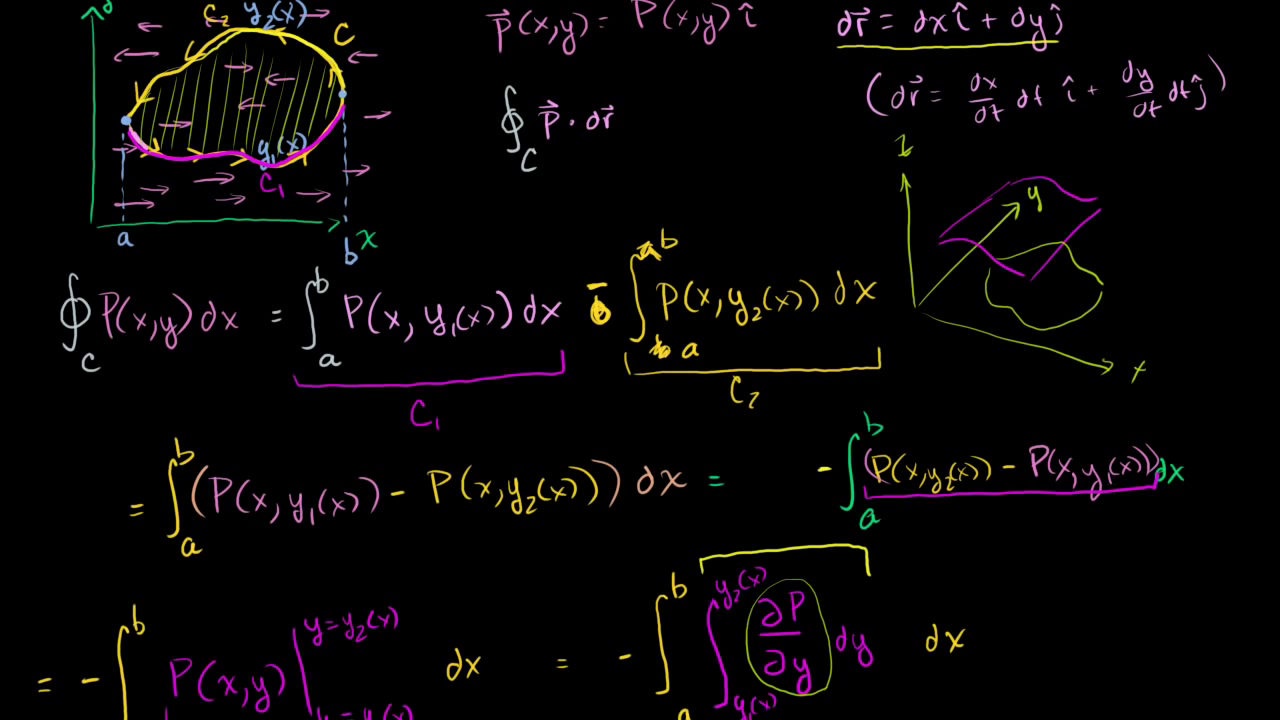 y
C₂ y₂(x)
C
y₁(x)
C₁
a
b
x
P⃗(x,y) = P(x,y) î
∮_C P⃗ · dr⃗
dr⃗ = dx î + dy ĵ
(dr⃗ = dx/dt dt î + dy/dt dt ĵ)
z
y
x
∮_C P(x,y) dx = ∫_a^b P(x, y₁(x)) dx − ∫_a^b P(x, y₂(x)) dx
C₁
C₂
= ∫_a^b (P(x, y₁(x)) − P(x, y₂(x))) dx = − ∫_a^b (P(x, y₂(x)) − P(x, y₁(x))) dx
= − ∫^b P(x,y) |_{y=y₁(x)}^{y=y₂(x)} dx = − ∫_a^b ∫_{y₁(x)}^{y₂(x)} ∂P/∂y dy dx